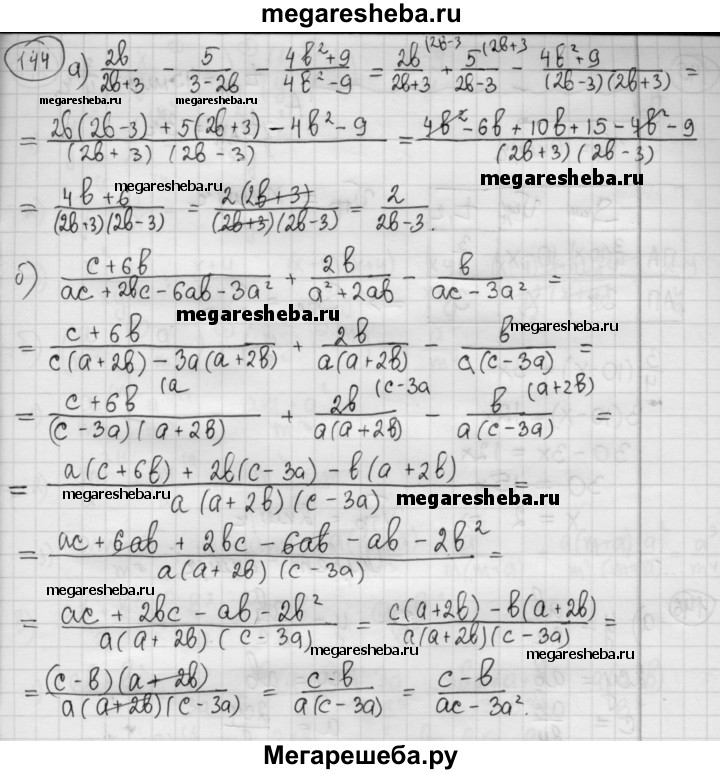 megaresheba.ru
144 а) 2b/(2b+3) - 5/(3-2b) - (4b²+9)/(4b²-9) = 2b/(2b+3) (2b-3 + 5/(2b-3) (2b+3 - (4b²+9)/((2b-3)(2b+3)) =
megaresheba.ru megaresheba.ru
= (2b(2b-3) + 5(2b+3) - 4b² - 9)/((2b+3)(2b-3)) = (4b² - 6b + 10b + 15 - 4b² - 9)/((2b+3)(2b-3))
megaresheba.ru
= (4b + 6)/((2b+3)(2b-3)) = 2(2b+3)/((2b+3)(2b-3)) = 2/(2b-3).
megaresheba.ru
б) (c+6b)/(ac+2bc-6ab-3a²) + 2b/(a²+2ab) - b/(ac-3a²) =
megaresheba.ru
megaresheba.ru
= (c+6b)/(c(a+2b)-3a(a+2b)) + 2b/(a(a+2b)) - b/(a(c-3a)) =
= (c+6b)/((c-3a)(a+2b)) (a + 2b/(a(a+2b)) (c-3a - b/(a(c-3a)) (a+2b) =
= (a(c+6b) + 2b(c-3a) - b(a+2b))/(a(a+2b)(c-3a)) =
megaresheba.ru megaresheba.ru
= (ac + 6ab + 2bc - 6ab - ab - 2b²)/(a(a+2b)(c-3a)) =
megaresheba.ru
= (ac + 2bc - ab - 2b²)/(a(a+2b)(c-3a)) = (c(a+2b) - b(a+2b))/(a(a+2b)(c-3a)) =
megaresheba.ru megaresheba.ru
= (c-b)(a+2b)/(a(a+2b)(c-3a)) = (c-b)/(a(c-3a)) = (c-b)/(ac-3a²).
megaresheba.ru
Мегарешеба.ру